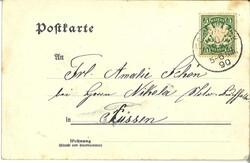 Postkarte
An
Frl. Amalie Schon
bei Herrn Nikola
in Füssen
Wohnung
(Straße und Hausnummer)